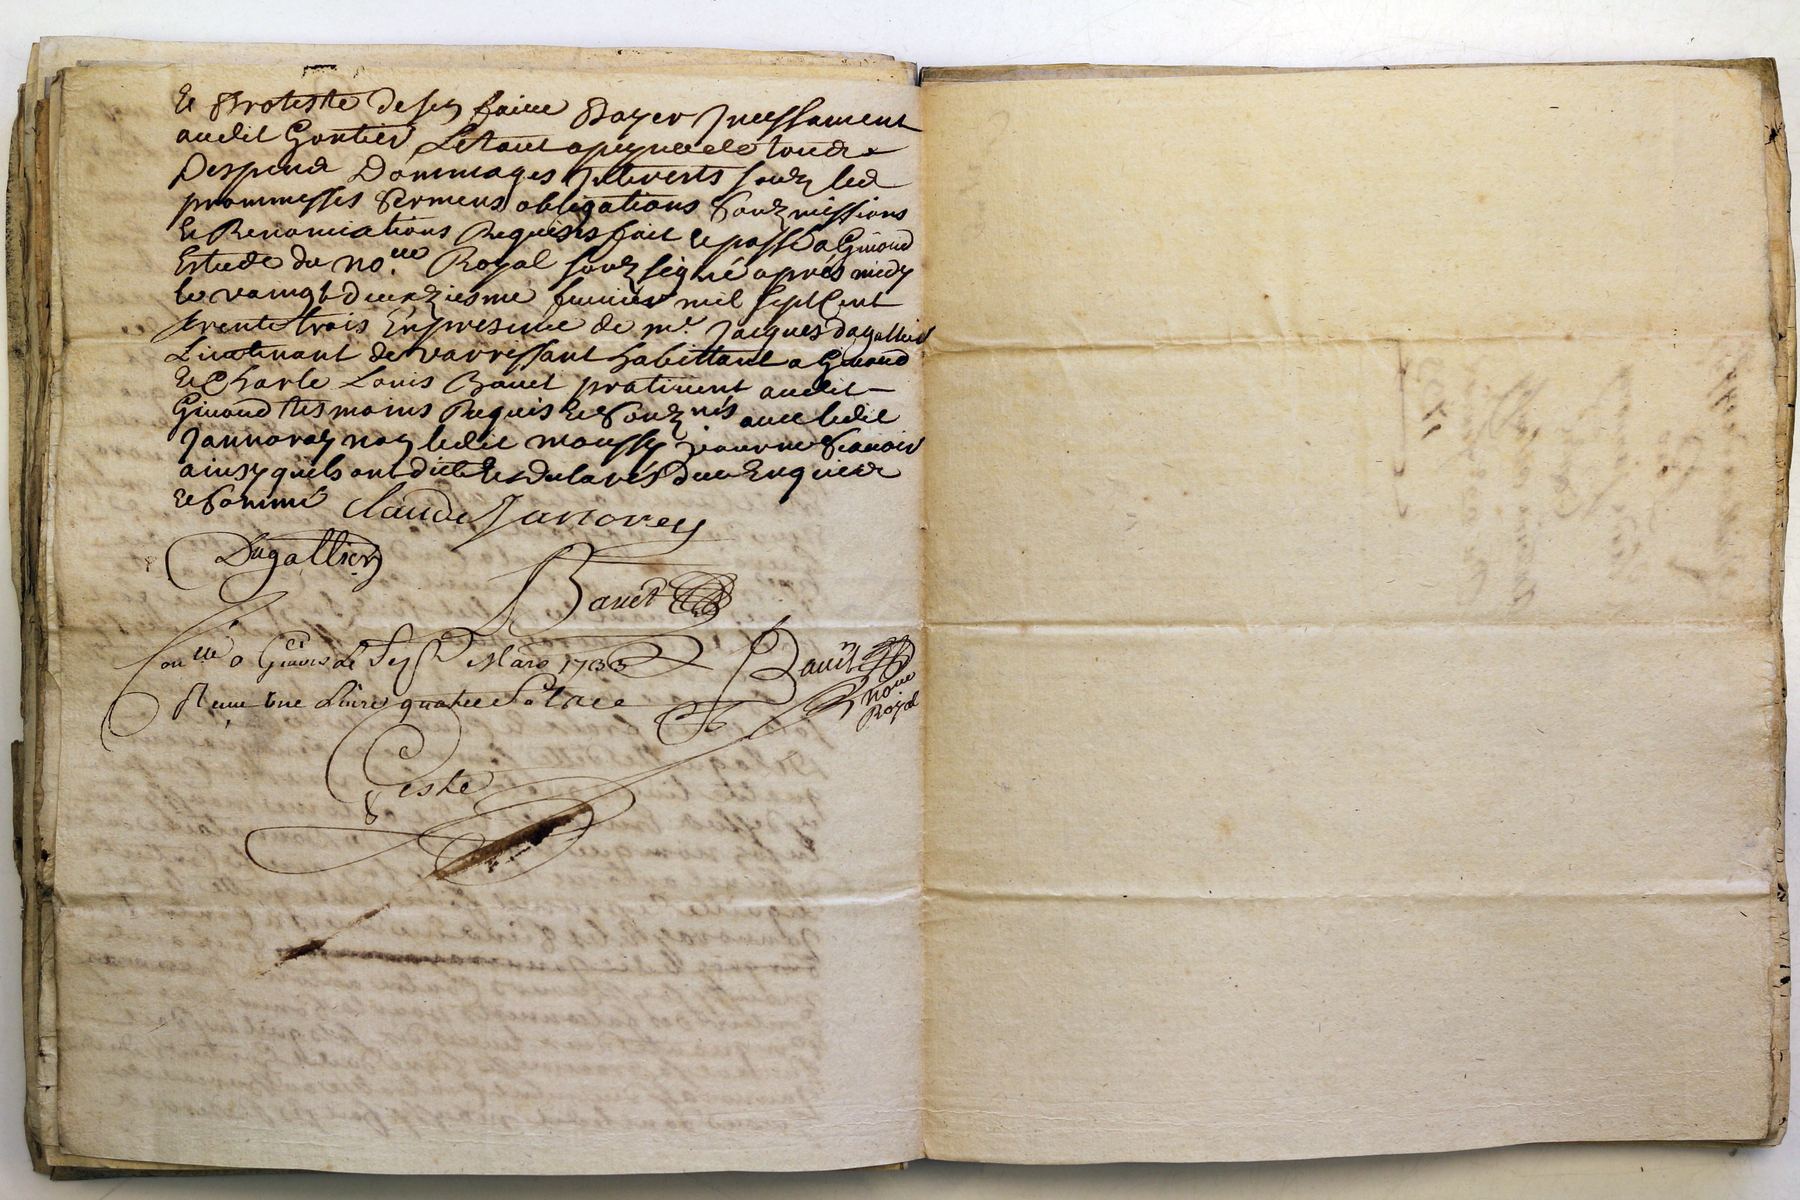 et proteste de sen faire payer incessament
audit Gontier Letant a peyne de touts
Despend Dommages Interests soubz les
prommesses sermens obligations soubzmissions
et Renonciations Requises fait et passé a Giuond
Estude du no.re Royal soubz signé aprés midy
le vaingt deuxziesme feurier mil sept Cent
trente trois En presence de mr. Jacques dagallier
Lieutenant de varrissant habittant a Giuond
et Charle Louis Bauet praticient audit
Giuond tesmoins Requis et soubznés auec ledit
Jannoray non ledit moussy pour ne scauoir
ainsy quils ont dit et declarés de ce Enquier
et sommé Claude Janorey
Dagallier
Bauet
Con.lle a le Sep Mars 1733 Bauet
Receu une Livre quatre sols no.re
Royal
Ceste